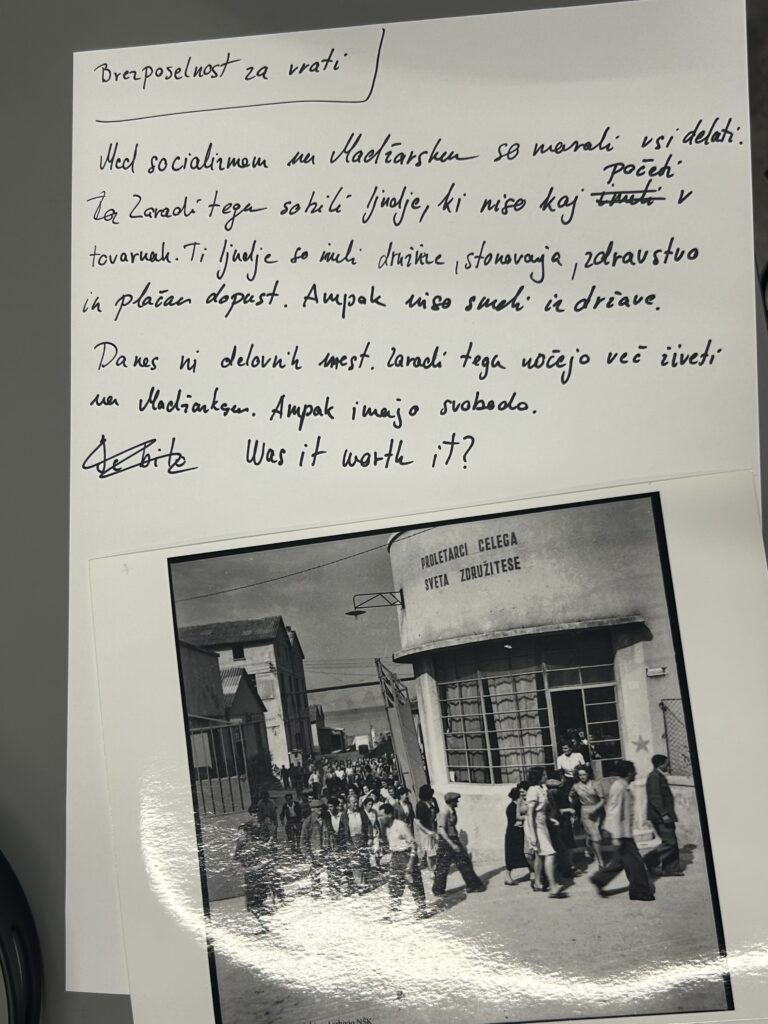 Brezposelnost za vrati
Med socializmom na Madžarskem so morali vsi delati.
početi
Za Zaradi tega so bili ljudje, ki niso kaj imeli v
tovarnah. Ti ljudje so imeli družine, stanovanja, zdravstvo
in plačan dopust. Ampak niso smeli iz države.
Danes ni delovnih mest. Zaradi tega nočejo več živeti
na Madžarkem. Ampak imajo svobodo.
Was it worth it?
PROLETARCI CELEGA
SVETA ZDRUŽITESE
NŠK